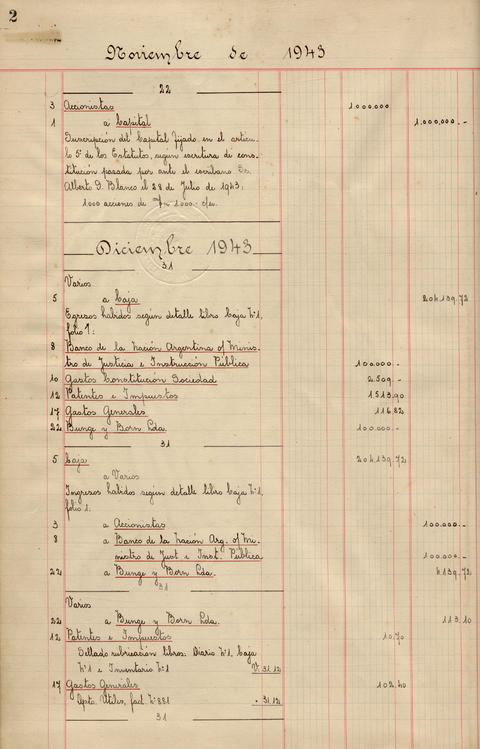 2
Noviembre de 1943
22
3 Accionistas 1.000.000
1 a Capital 1.000.000.-
Suscripción del Capital fijado en el artícu-
lo 5º de los Estatutos, según escritura de cons-
titución pasada por ante el escribano
Alberto J. Blanco el 28 de Julio de 1943:
1000 acciones de 1000.- c/u.
Diciembre 1943
31
Varios
5 a Caja 204.139.72
Egresos habidos según detalle libro Caja Nº1,
folio 1:
8 Banco de la Nación Argentina o/ Minis-
tro de Justicia e Instrucción Pública 100.000.-
10 Gastos Constitución Sociedad 2.509.-
12 Patentes e Impuestos 1.513.90
17 Gastos Generales 116.82
22 Bunge y Born Lda. 100.000.-
31
5 Caja 204.139.72
a Varios
Ingresos habidos según detalle libro Caja Nº1,
folio 1:
3 a Accionistas 100.000.-
8 a Banco de la Nación Arg. o/ Mi-
nistro de Just. e Inst. Pública 100.000.-
22 a Bunge y Born Lda. 4.139.72
31
Varios
22 a Bunge y Born Lda. 113.10
12 Patentes e Impuestos 10.70
Sellado rubricación libros: Diario Nº1, Caja
Nº1 e Inventario Nº1 V. 31.12
17 Gastos Generales 102.40
Dpto. Utiles, fact. Nº 881 " 31.12
31